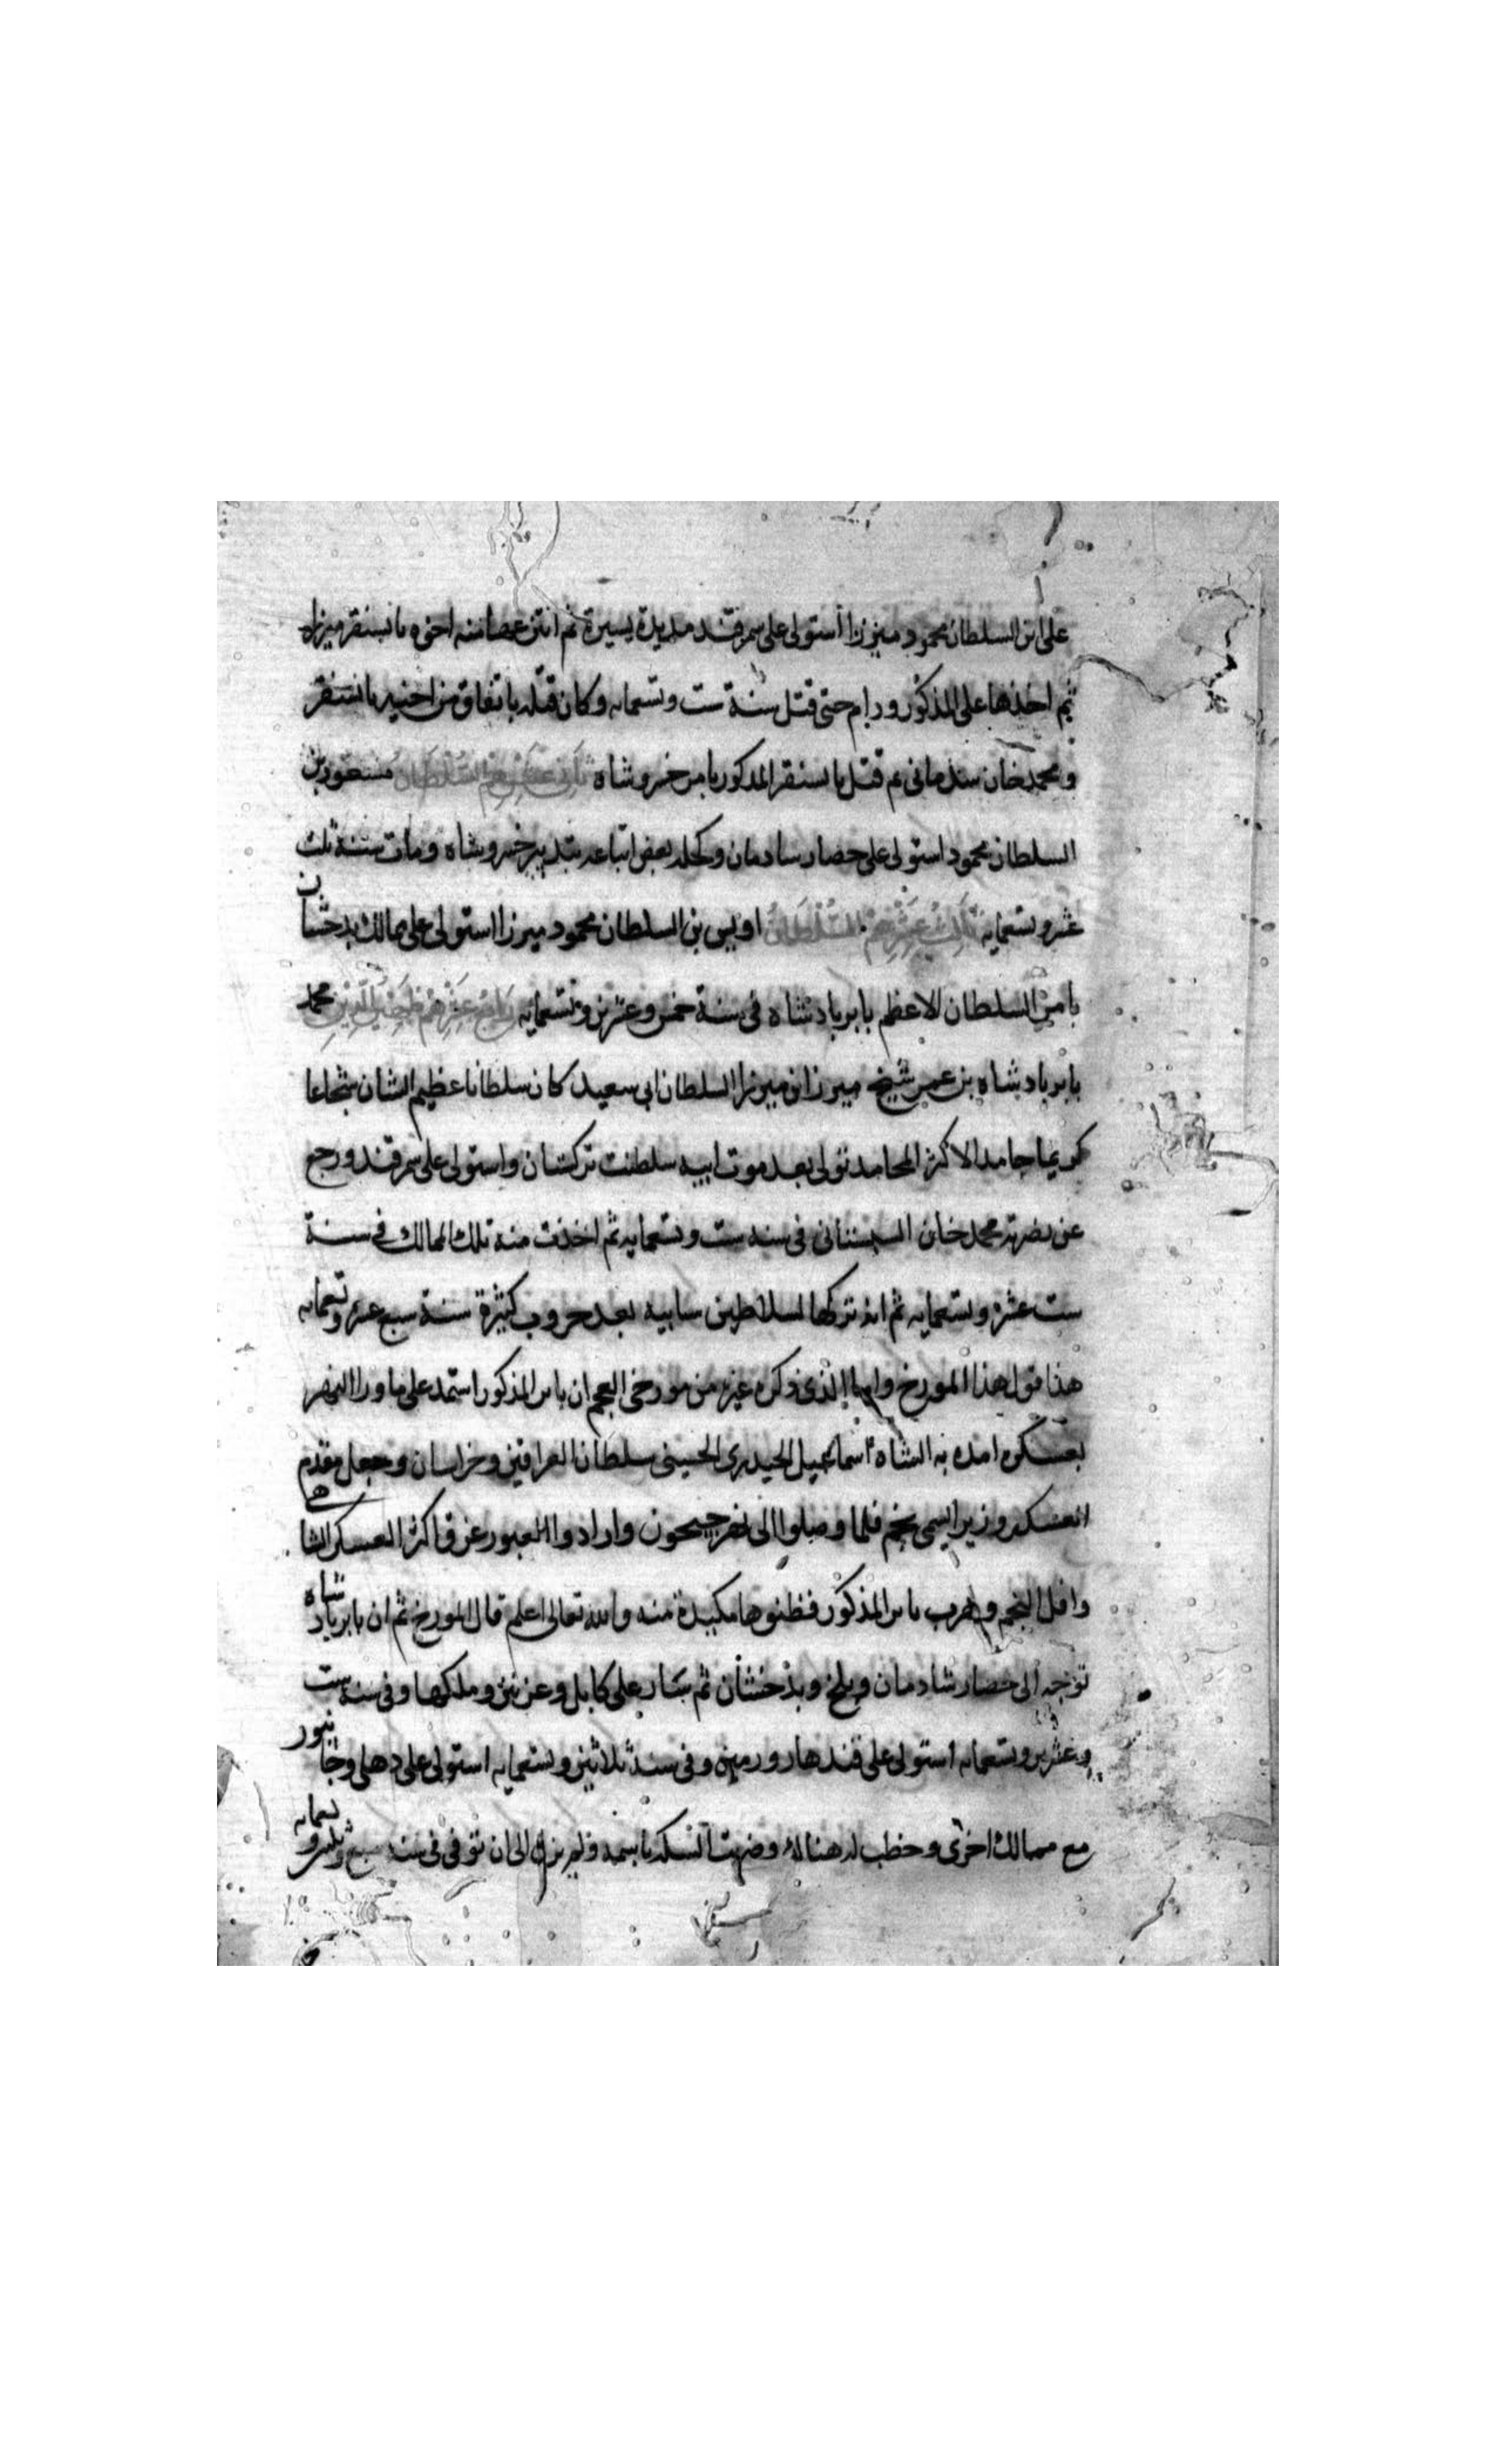 على ابن السلطان محمود ميرزا استولى على سمرقند مديدة يسيرة ثم انتزعها منه اخوه بايسنقر ميرزا
ثم اخذها على المذكور ودام حتى قتل سنة ست وتسعمايه وكان قتله باتفاق من اخيه بايسنقر
ومحمد خان سلمانى ثم قتل بايسنقر المذكور بامر خسرو شاه ثانى عشرهم السلطان مسعود بن
السلطان محمود استولى على حصار سادمان وكحله بعض اتباعه بتدبير خسرو شاه ومات سنة ثلث
عشر وتسعمايه ثالث عشرهم السلطان اويس بن السلطان محمود ميرزا استولى على ممالك بدخشان
بامر السلطان الاعظم بابر بادشاه فى سنة خمس وعشرين وتسعمايه رابع عشرهم ظهير الدين محمد
بابر بادشاه بن عمر شيخ ميرزا بن ميرزا السلطان ابى سعيد كان سلطانا عظيم الشان شجاعا
كريما جامدا لاكثر المحامد تولى بعد موت ابيه سلطنت تركستان واستولى على سمرقند ورجع
عن محمد خان فى سنه ست وتسعمايه ثم اخذت منه تلك الممالك فى سنة
ست عشره وتسعمايه ثم انه تركها لسلاطين بعد حروب كثيرة سنة سبع عشر وتسعمايه
هذا قول هذا المورخ واما الذى ذكره غيره من مورخى العجم ان بابر المذكور استمد على ما ورا النهر
بعسكره امده به الشاه اسماعيل الحيدرى الحسينى سلطان العراقين وخراسان وجعل مقدم
العسكر وزير ايسمى نجم فلما وصلوا الى نهر جيحون وارادوا العبور غرق اكثر العسكر الشاهى
وافل النجم وهرب بابر المذكور فظنوها مكيدة منه والله تعالى اعلم قال المورخ ثم ان بابر بادشاه
توجه الى حصار شادمان وبلخ وبدخشان ثم سار على كابل وغزنين وملكها وفى سنه ست
وعشرين وتسعمايه استولى على قندهار وفى سنة ثلاثين وتسعمايه استولى على دهلى وجانبور
مع ممالك اخرى وخطب له هنالك وضربت السكه باسمه ولم يزل الى ان توفى فى سنه سبع وثلثين وتسعمايه